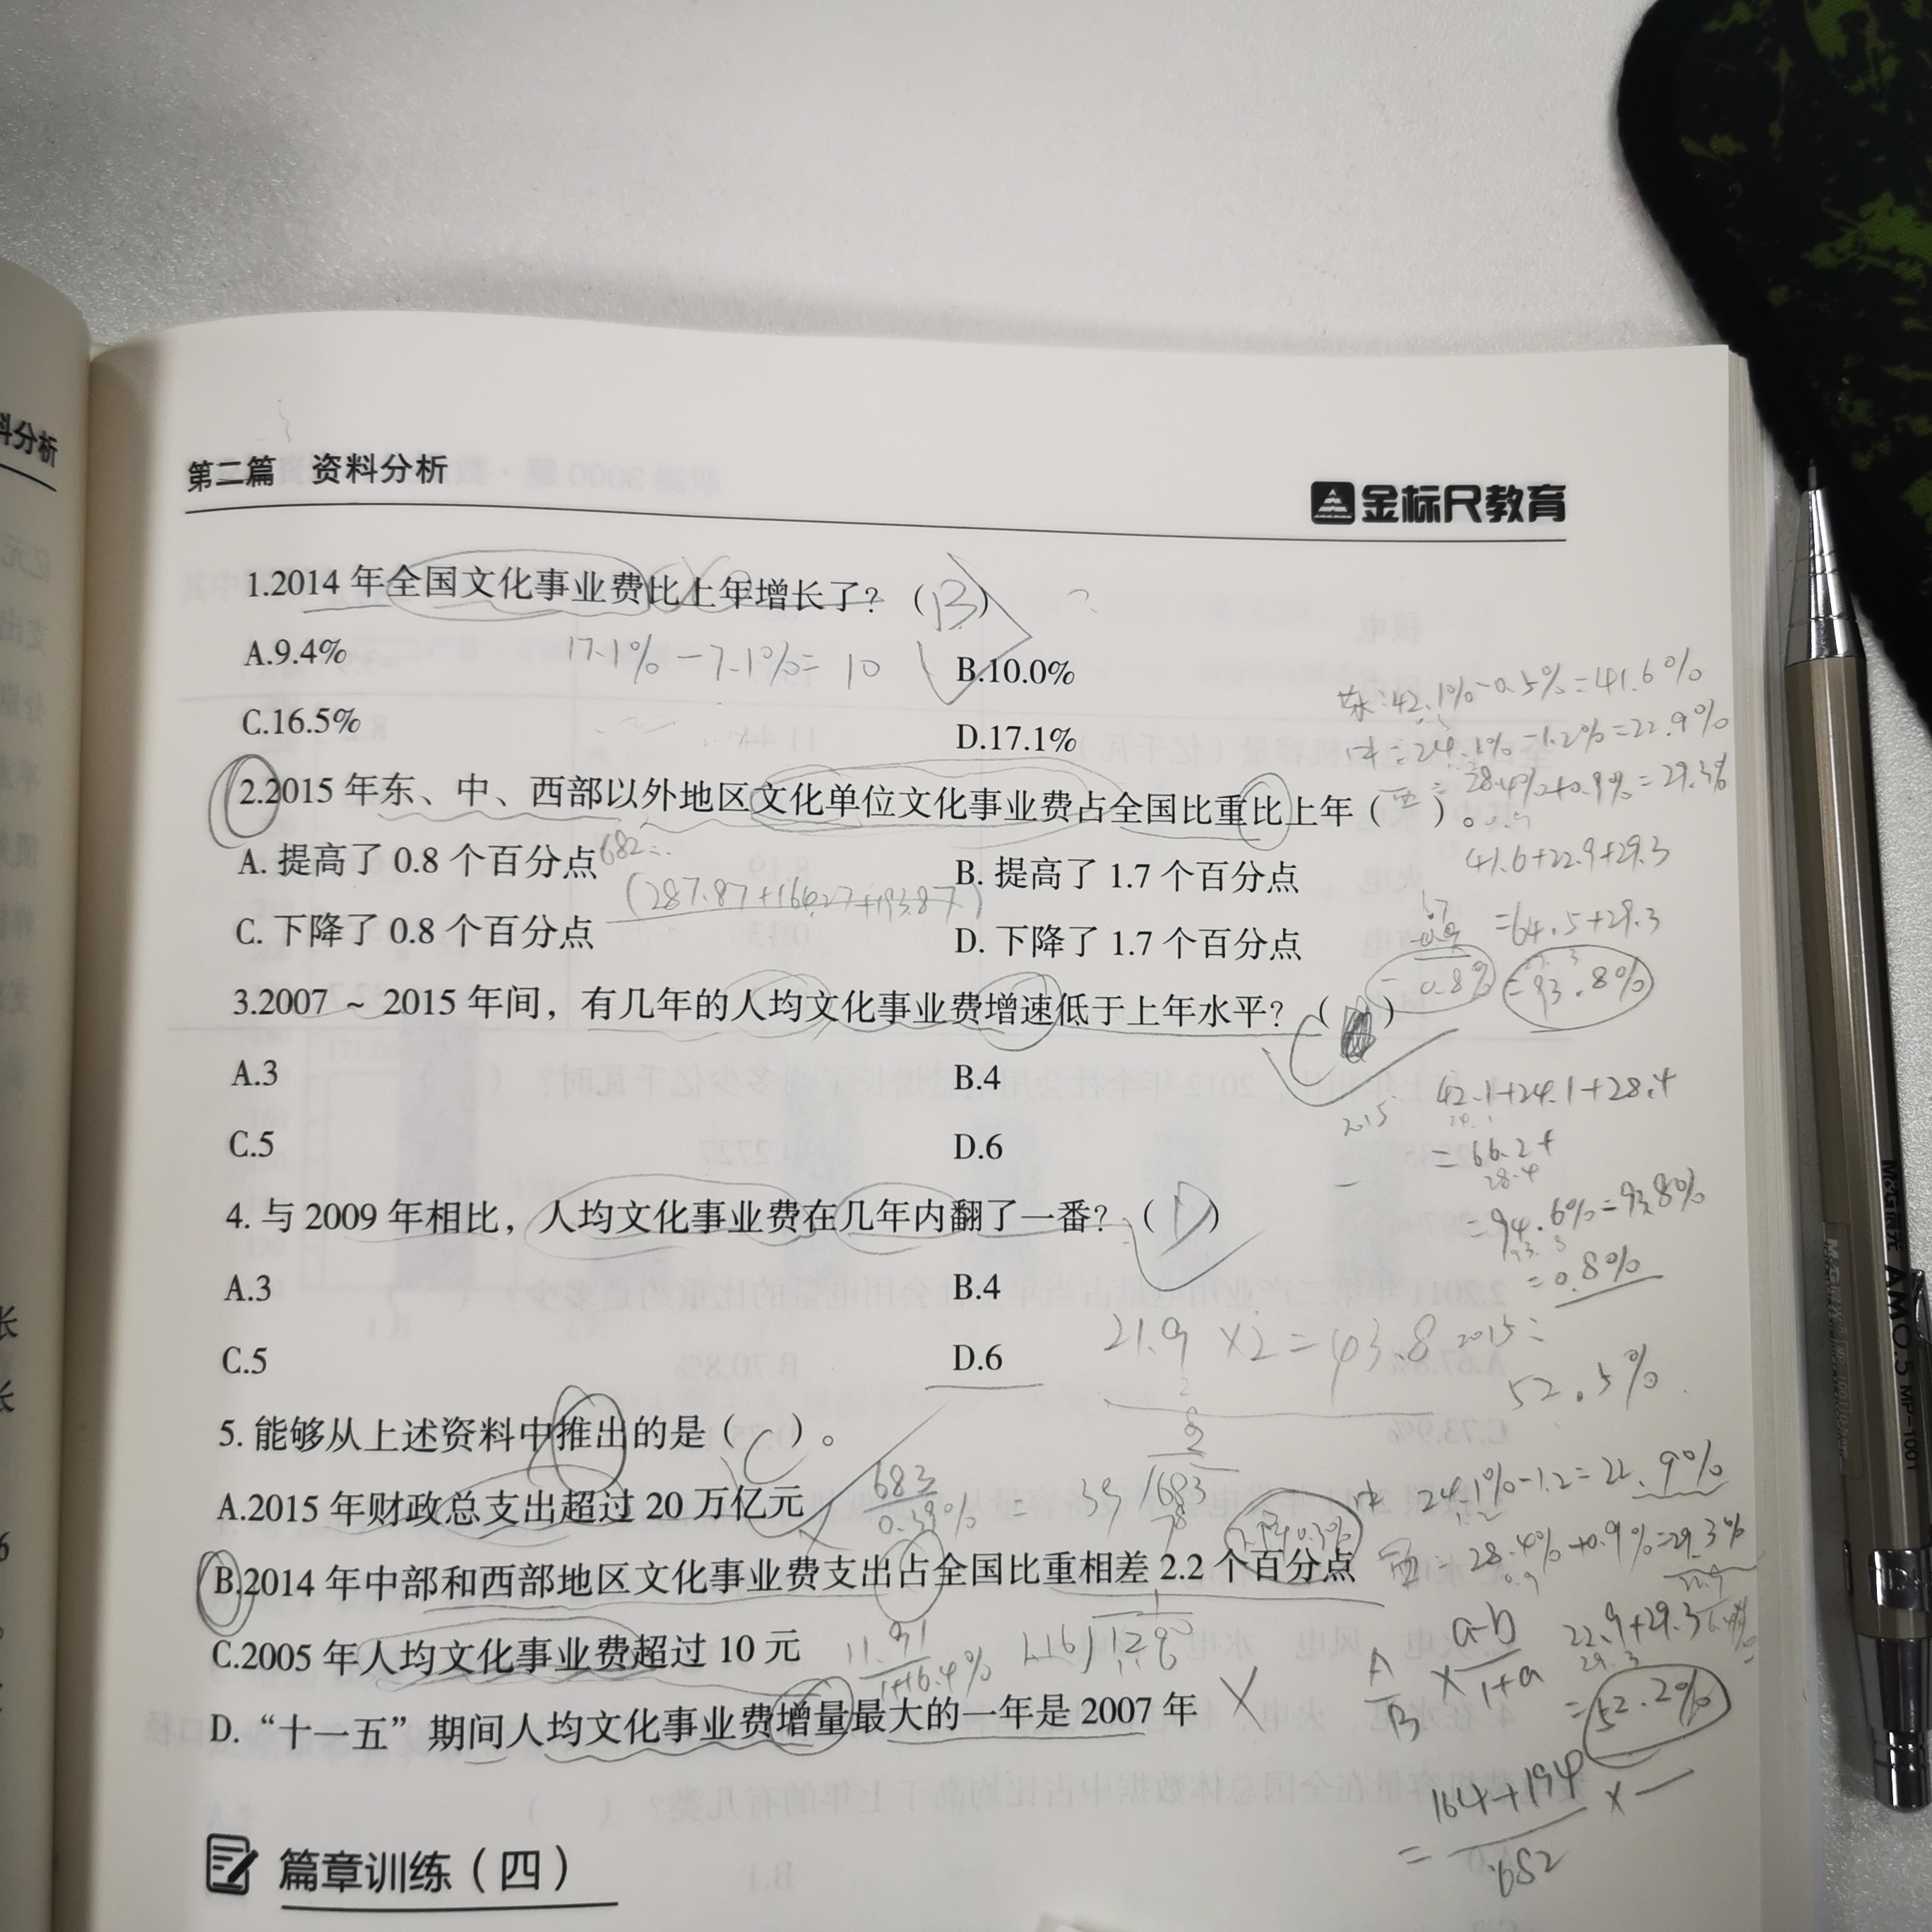 料分析
第二篇 资料分析
金标尺教育
1.2014 年全国文化事业费比上年增长了？（B）
A.9.4%
17.1%－7.1%= 10
B.10.0%
C.16.5%
D.17.1%
东：42.1%-0.5%=41.6%
中：24.1%-1.2%=22.9%
西：28.4%+0.9%=29.3%
2.2015 年东、中、西部以外地区文化单位文化事业费占全国比重比上年（ ）。
A. 提高了 0.8 个百分点
B. 提高了 1.7 个百分点
(287.87+164.27+193.87)
C. 下降了 0.8 个百分点
D. 下降了 1.7 个百分点
41.6+22.9+29.3
=64.5+29.3
=93.8%
0.8%
3.2007 ~ 2015 年间，有几年的人均文化事业费增速低于上年水平？（ ）
C
A.3
B.4
C.5
D.6
2015
42.1+24.1+28.4
=66.2+
28.4
=94.6%=93.8%
=0.8%
4. 与 2009 年相比，人均文化事业费在几年内翻了一番？（D）
A.3
B.4
C.5
D.6
21.9 ×2=43.8
2015：
52.5%
5. 能够从上述资料中推出的是（C）。
A.2015 年财政总支出超过 20 万亿元
683
0.39%
= 39
683
78
中 24.1%-1.2=22.9%
B.2014 年中部和西部地区文化事业费支出占全国比重相差 2.2 个百分点
西：28.4%+0.9%=29.3%
C.2005 年人均文化事业费超过 10 元
11.91
1+16.4%
22.9+29.3
=52.2%
A
B
×
a-b
1+a
D. “十一五”期间人均文化事业费增量最大的一年是 2007 年
×
=
164+194
682
×
篇章训练（四）
M&G晨光 AMO.5 MP-1001